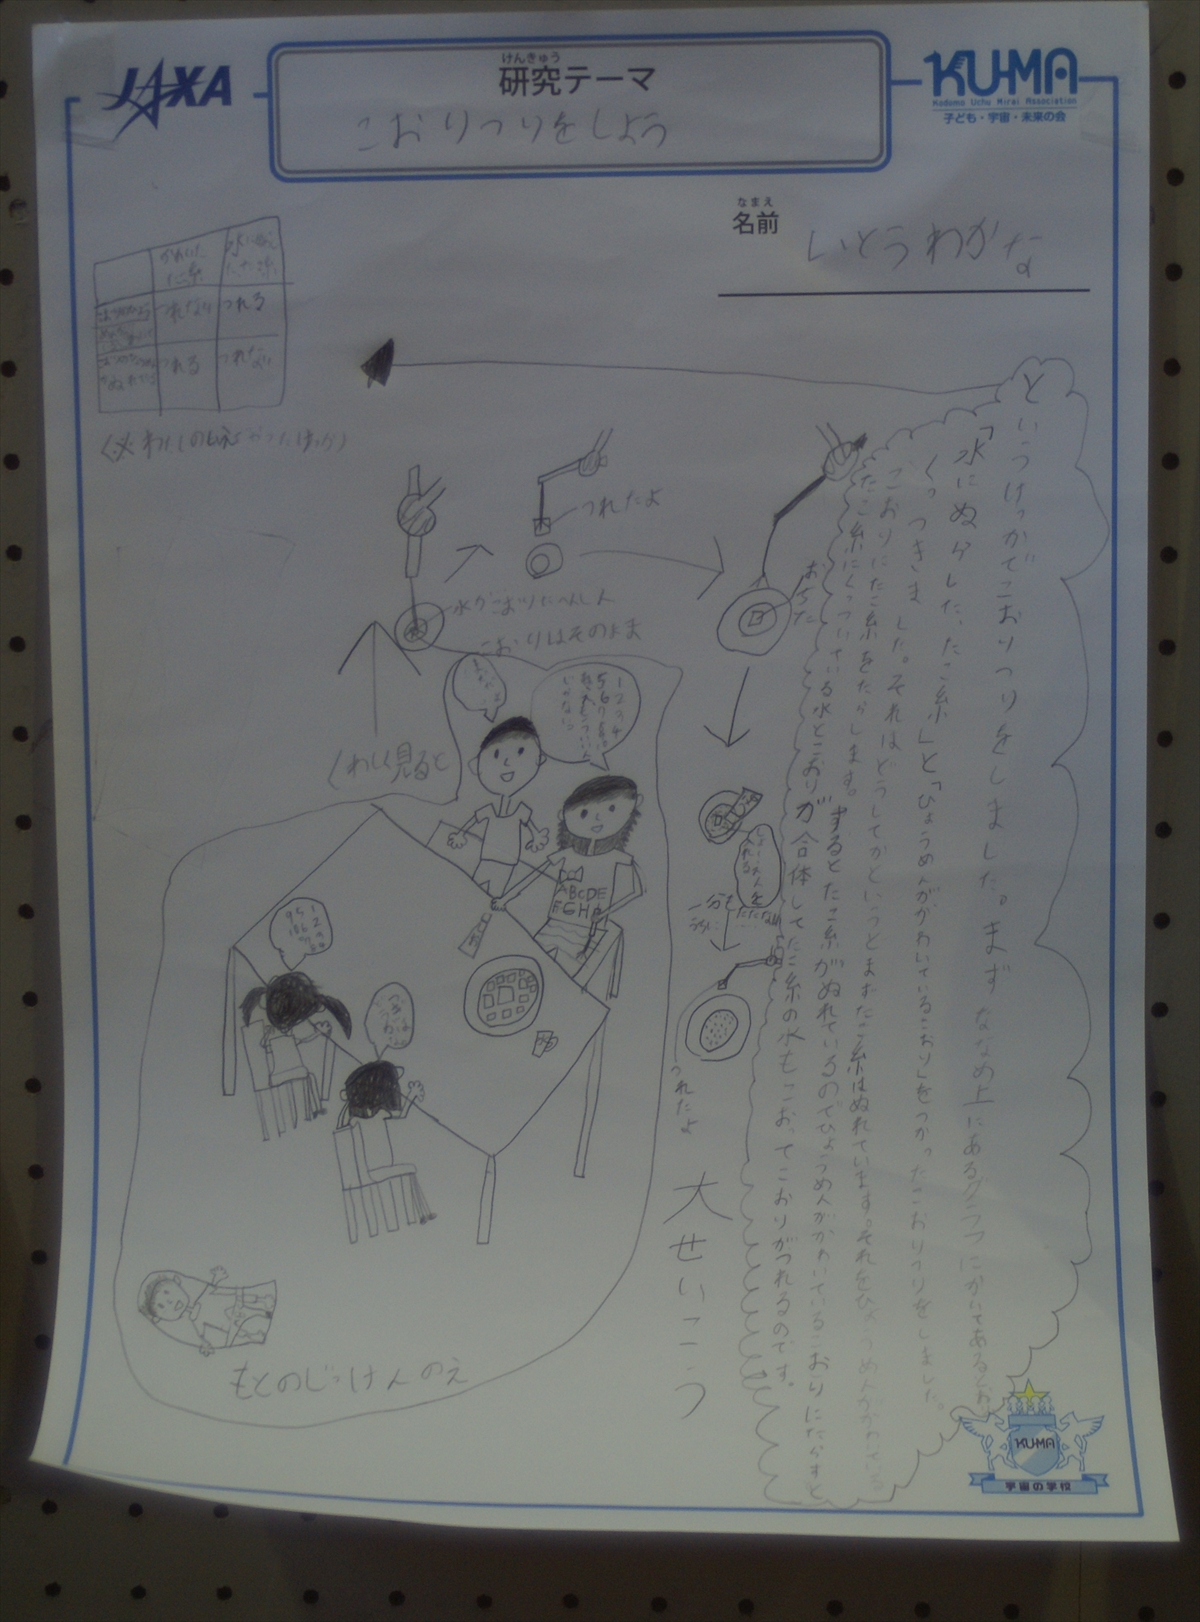 JAXA
けんきゅう
研究テーマ
こおりつりをしよう
KU-MA
Kodomo Uchu Mirai Association
子ども・宇宙・未来の会
なまえ
名前
いとうわかな
かわいた
たこ糸
水にぬら
したたこ糸
つれない
つれる
つれる
つれない
というけっかでこおりつりをしました。まず ななめ上にあるグラフにかいてあるとお
「水にぬらした、たこ糸」と「ひょうめんがかわいているこおり」をつかったこおりつりをしました。
くっつきました。それはどうしてかというとまずたこ糸はぬれています。それをひょうめんがかわいている
こおりにたこ糸をたらします。するとたこ糸がぬれているのでひょうめんがかわいているこおりにたらすと
たこ糸にくっついている水とこおりが合体してたこ糸の水もこおってこおりがつれるのです。
つれたよ
おちた
水がこおりにへんしん
こおりはそのまま
くわしく見ると
1234
567
ABCDE
FGH
一分も
つれたよ
大せいこう
もとのじっけんのえ
KU-MA
宇宙の学校